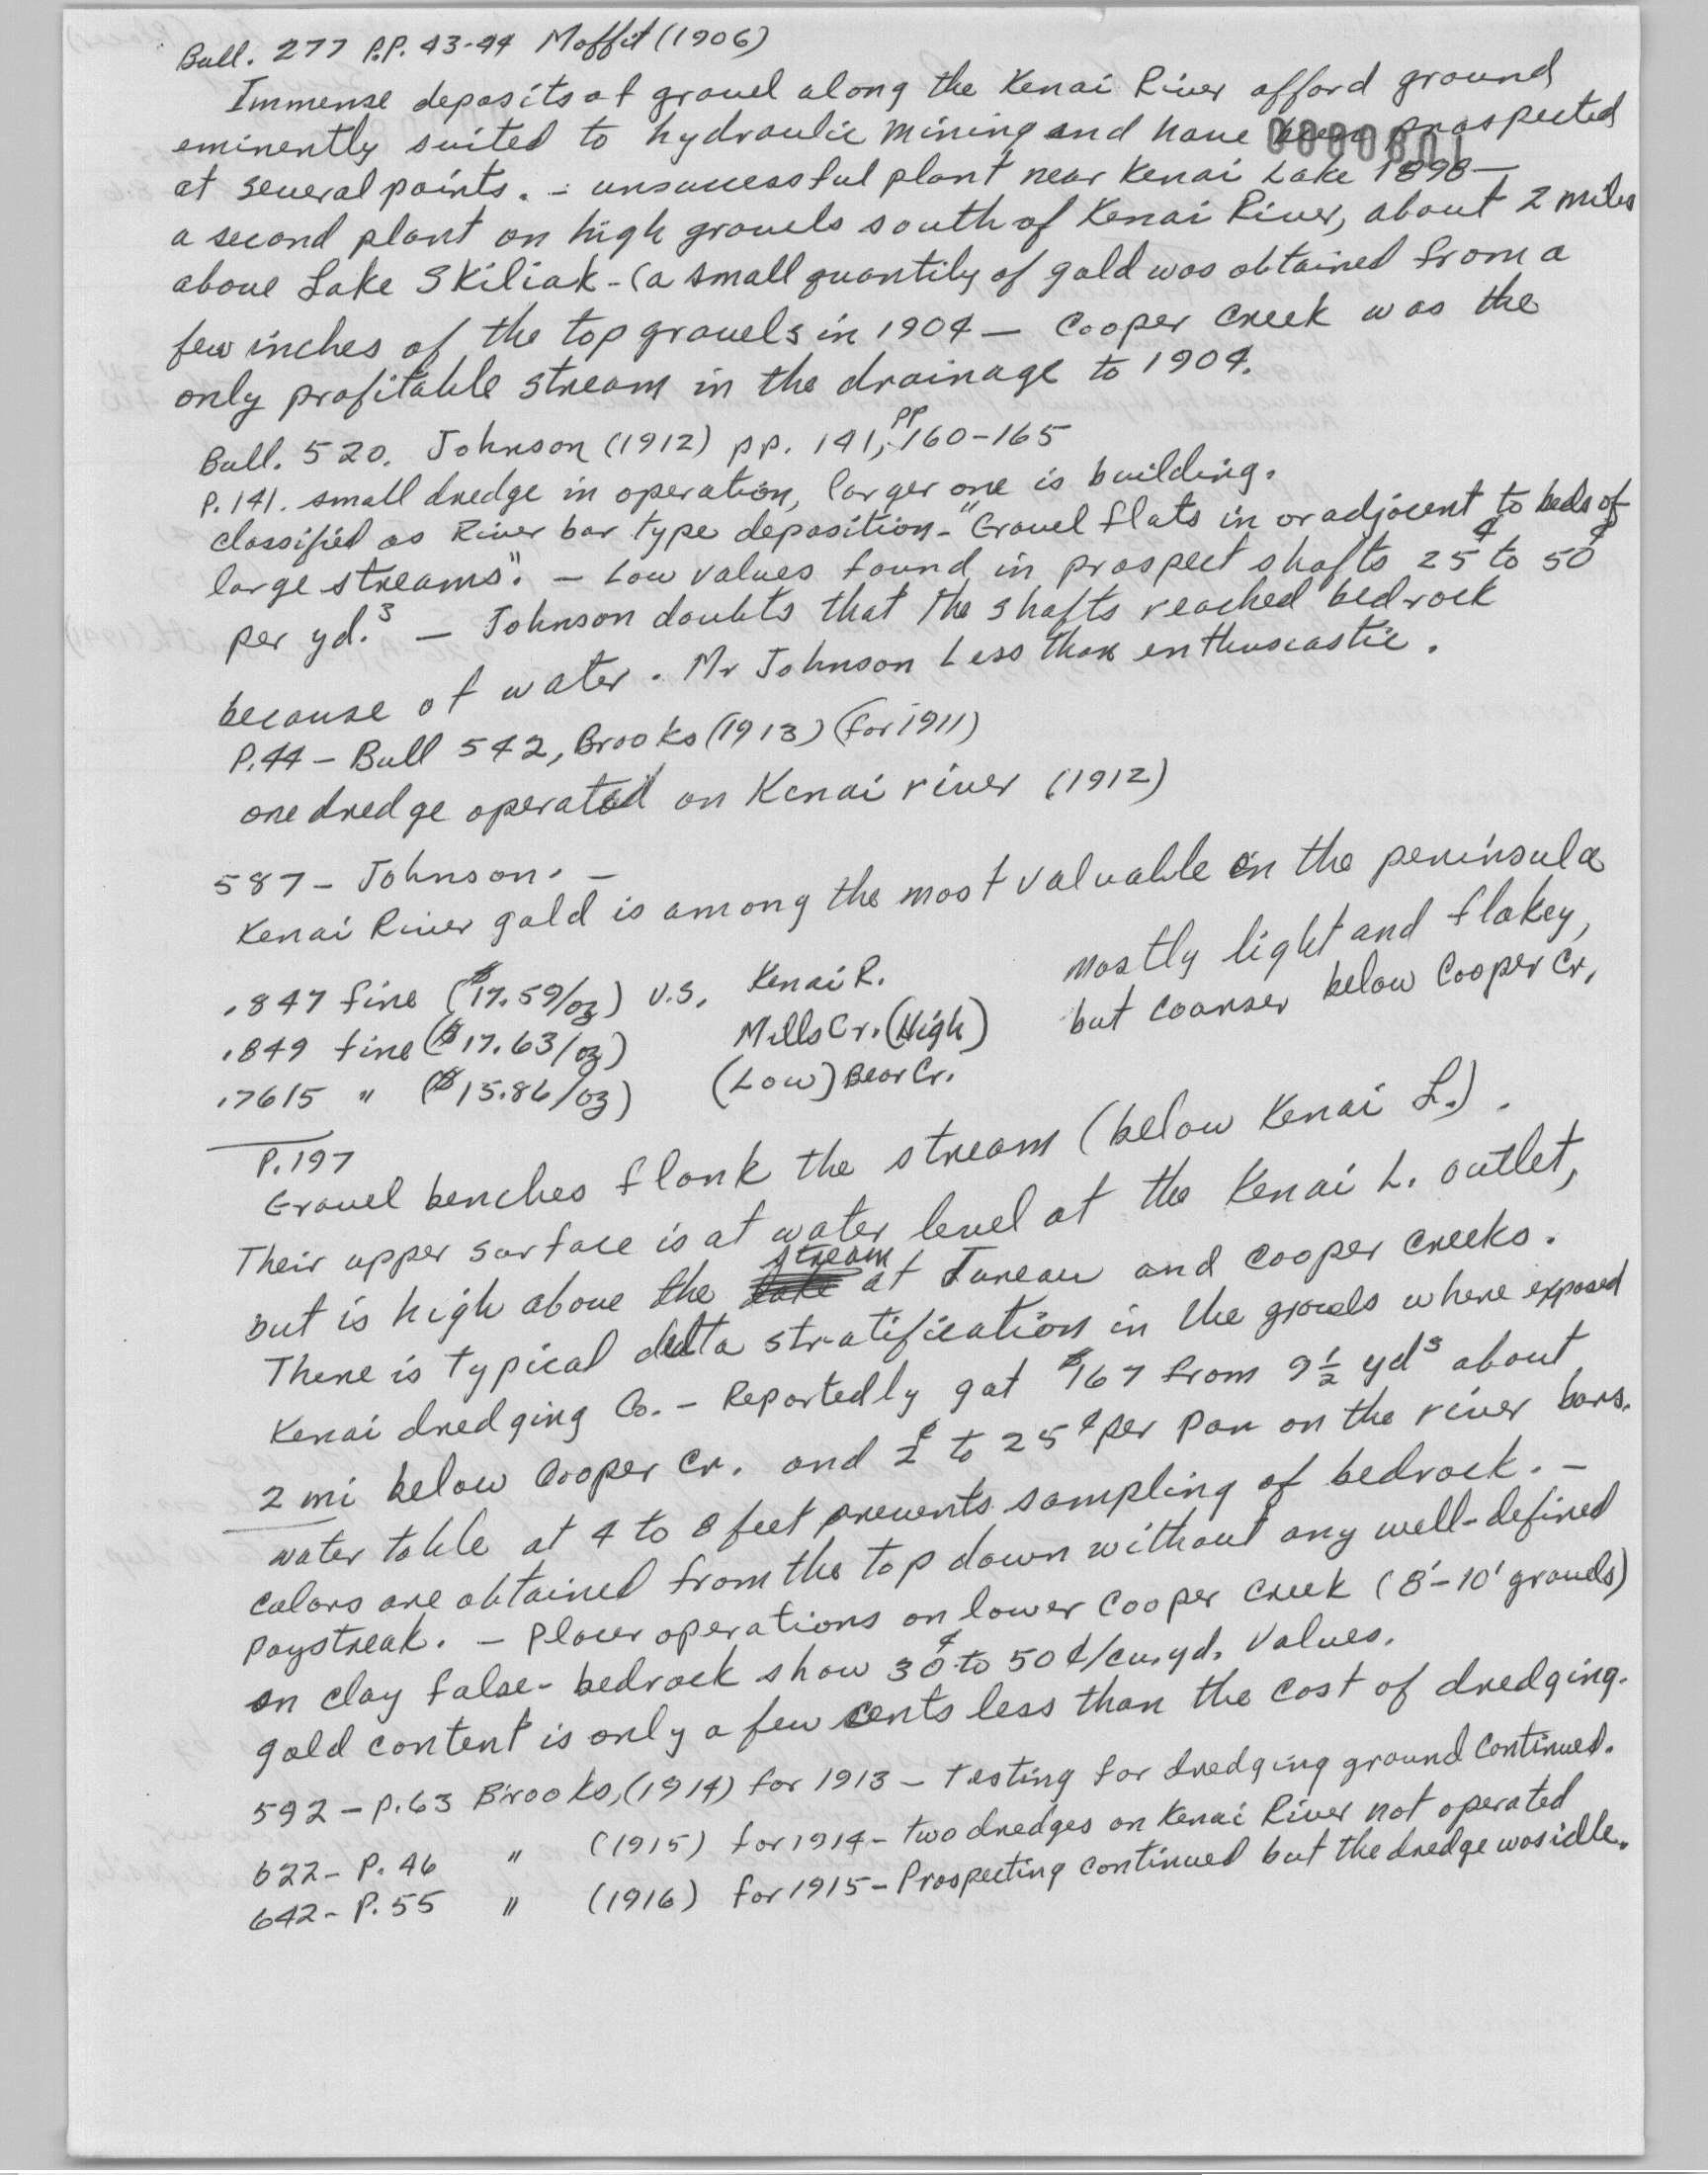 Bull. 277 P.P. 43-44 Moffit (1906)
Immense deposits of gravel along the Kenai River afford ground
eminently suited to hydraulic mining and have been prospected
0000801
at several points. - unsuccessful plant near Kenai Lake 1898 -
a second plant on high gravels south of Kenai River, about 2 miles
above Lake Skiliak - (a small quantity of gold was obtained from a
few inches of the top gravels in 1904 - Cooper Creek was the
only profitable stream in the drainage to 1904.
Bull. 520. Johnson (1912) pp. 141, pp 160-165
P. 141. small dredge in operation, larger one is building.
classified as River bar type deposition - "Gravel flats in or adjacent to beds of
large streams". - Low values found in prospect shafts 25¢ to 50¢
per yd.3 - Johnson doubts that the shafts reached bedrock
because of water. Mr Johnson Less than enthusiastic.
P.44 - Bull 542, Brooks (1913) (for 1911)
one dredge operated on Kenai river (1912)
587 - Johnson. -
Kenai River gold is among the most valuable on the peninsula
mostly light and flakey,
.847 fine ($17.59/oz) V.S. Kenai R.
but coarser below Cooper Cr.
.849 fine ($17.63/oz) Mills Cr. (High)
.7615 " ($15.86/oz) (Low) Bear Cr.
P. 197
Gravel benches flank the stream (below Kenai L.).
Their upper surface is at water level at the Kenai L. outlet,
but is high above the stream at Juneau and Cooper Creeks.
There is typical delta stratification in the gravels where exposed
Kenai dredging Co. - Reportedly got $167 from 9 1/2 yd3 about
2 mi below Cooper Cr. and 2¢ to 25¢ per pan on the river bars.
water table at 4 to 8 feet prevents sampling of bedrock. -
colors are obtained from the top down without any well-defined
paystreak. - Placer operations on lower Cooper Creek (8'-10' gravels)
on clay false-bedrock show 30¢ to 50¢/cu.yd. Values.
gold content is only a few cents less than the cost of dredging.
592 - P.63 Brooks, (1914) for 1913 - Testing for dredging ground continued.
622 - P. 46 " (1915) for 1914 - two dredges on Kenai River not operated
642 - P. 55 " (1916) for 1915 - Prospecting continued but the dredge was idle.